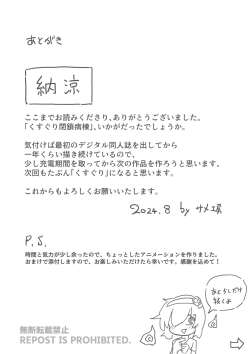 あとがき
納涼
ここまでお読みくださり、ありがとうございました。
「くすぐり閉鎖病棟」、いかがだったでしょうか。
気付けば最初のデジタル同人誌を出してから
一年くらい描き続けているので、
少し充電期間を取ってから次の作品を作ろうと思います。
次回もたぶん「くすぐり」になると思います。
これからもよろしくお願いいたします。
2024.8 by サメ工房
P.S.
時間と気力が少し余ったので、ちょっとしたアニメーションを作りました。
おまけで添付しますので、お楽しみいただけたら幸いです。感謝を込めて！
無断転載禁止
REPOST IS PROHIBITED.